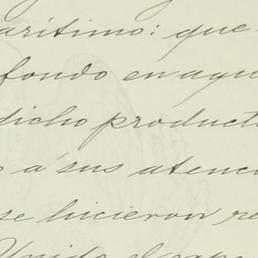 arítimo: que
fondo en agu
dicho product
o á sus atenc
se hicieron re
Unido